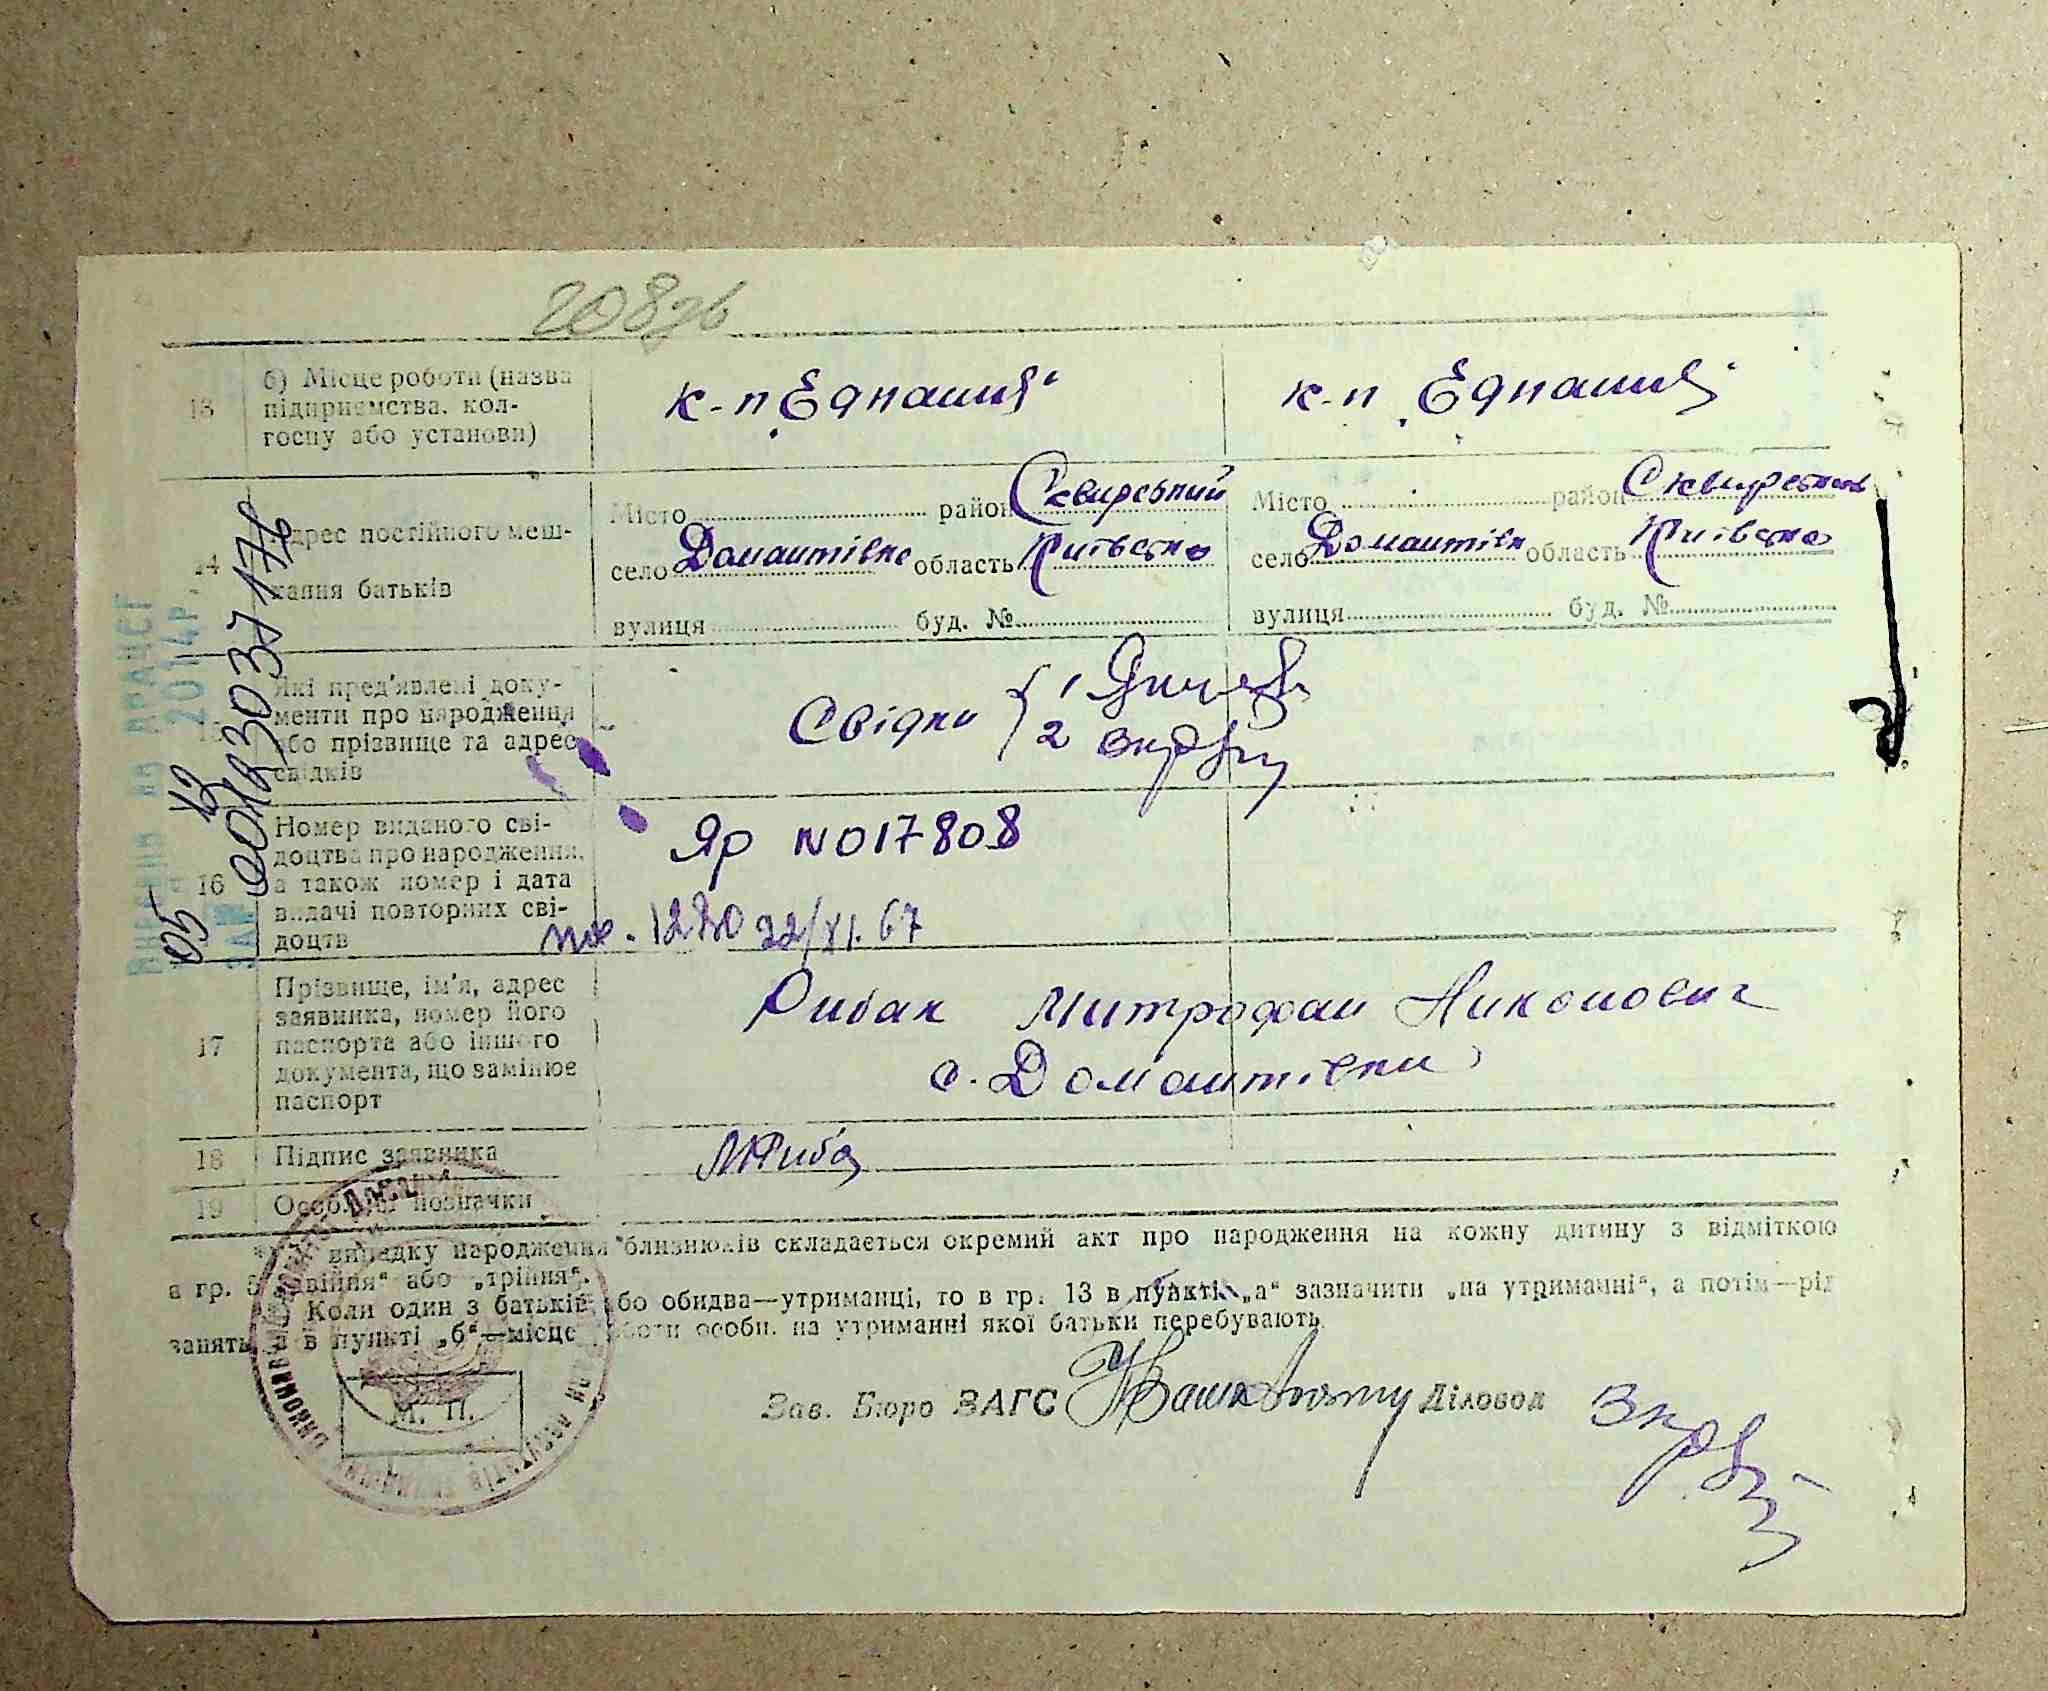 13 б) Місце роботи (назва підприємства, колгоспу або установи)
к-п „Еднання“ к-п „Еднання
14 Адрес постійного мешкання батьків
Місто район Сквирський Місто район Сквирський
село Домантівка область Київська село Домантівк область Київська
вулиця буд. № вулиця буд. №
15 Які пред'явлені документи про народження або прізвище та адрес свідків
Свідки { 1
2
16 Номер виданого свідоцтва про народження, а також номер і дата видачі повторних свідоцтв
Яр № 017808
22/XI. 67
17 Прізвище, ім'я, адрес заявника, номер його паспорта або іншого документа, що замінює паспорт
Рибак Митрофан Никонович
с. Домантівки
18 Підпис заявника МРиба
19 Особливі позначки
випадку народження близнюків складається окремий акт про народження на кожну дитину з відміткою
в гр. 5 „двійня“ або „трійня“.
Коли один з батьків або обидва—утриманці, то в гр. 13 в пункті „а“ зазначити „на утриманні“, а потім—рід
занять, а в пункті „б“—місце роботи особи, на утриманні якої батьки перебувають.
Зав. Бюро ЗАГС Діловод
М. П.
2014р.